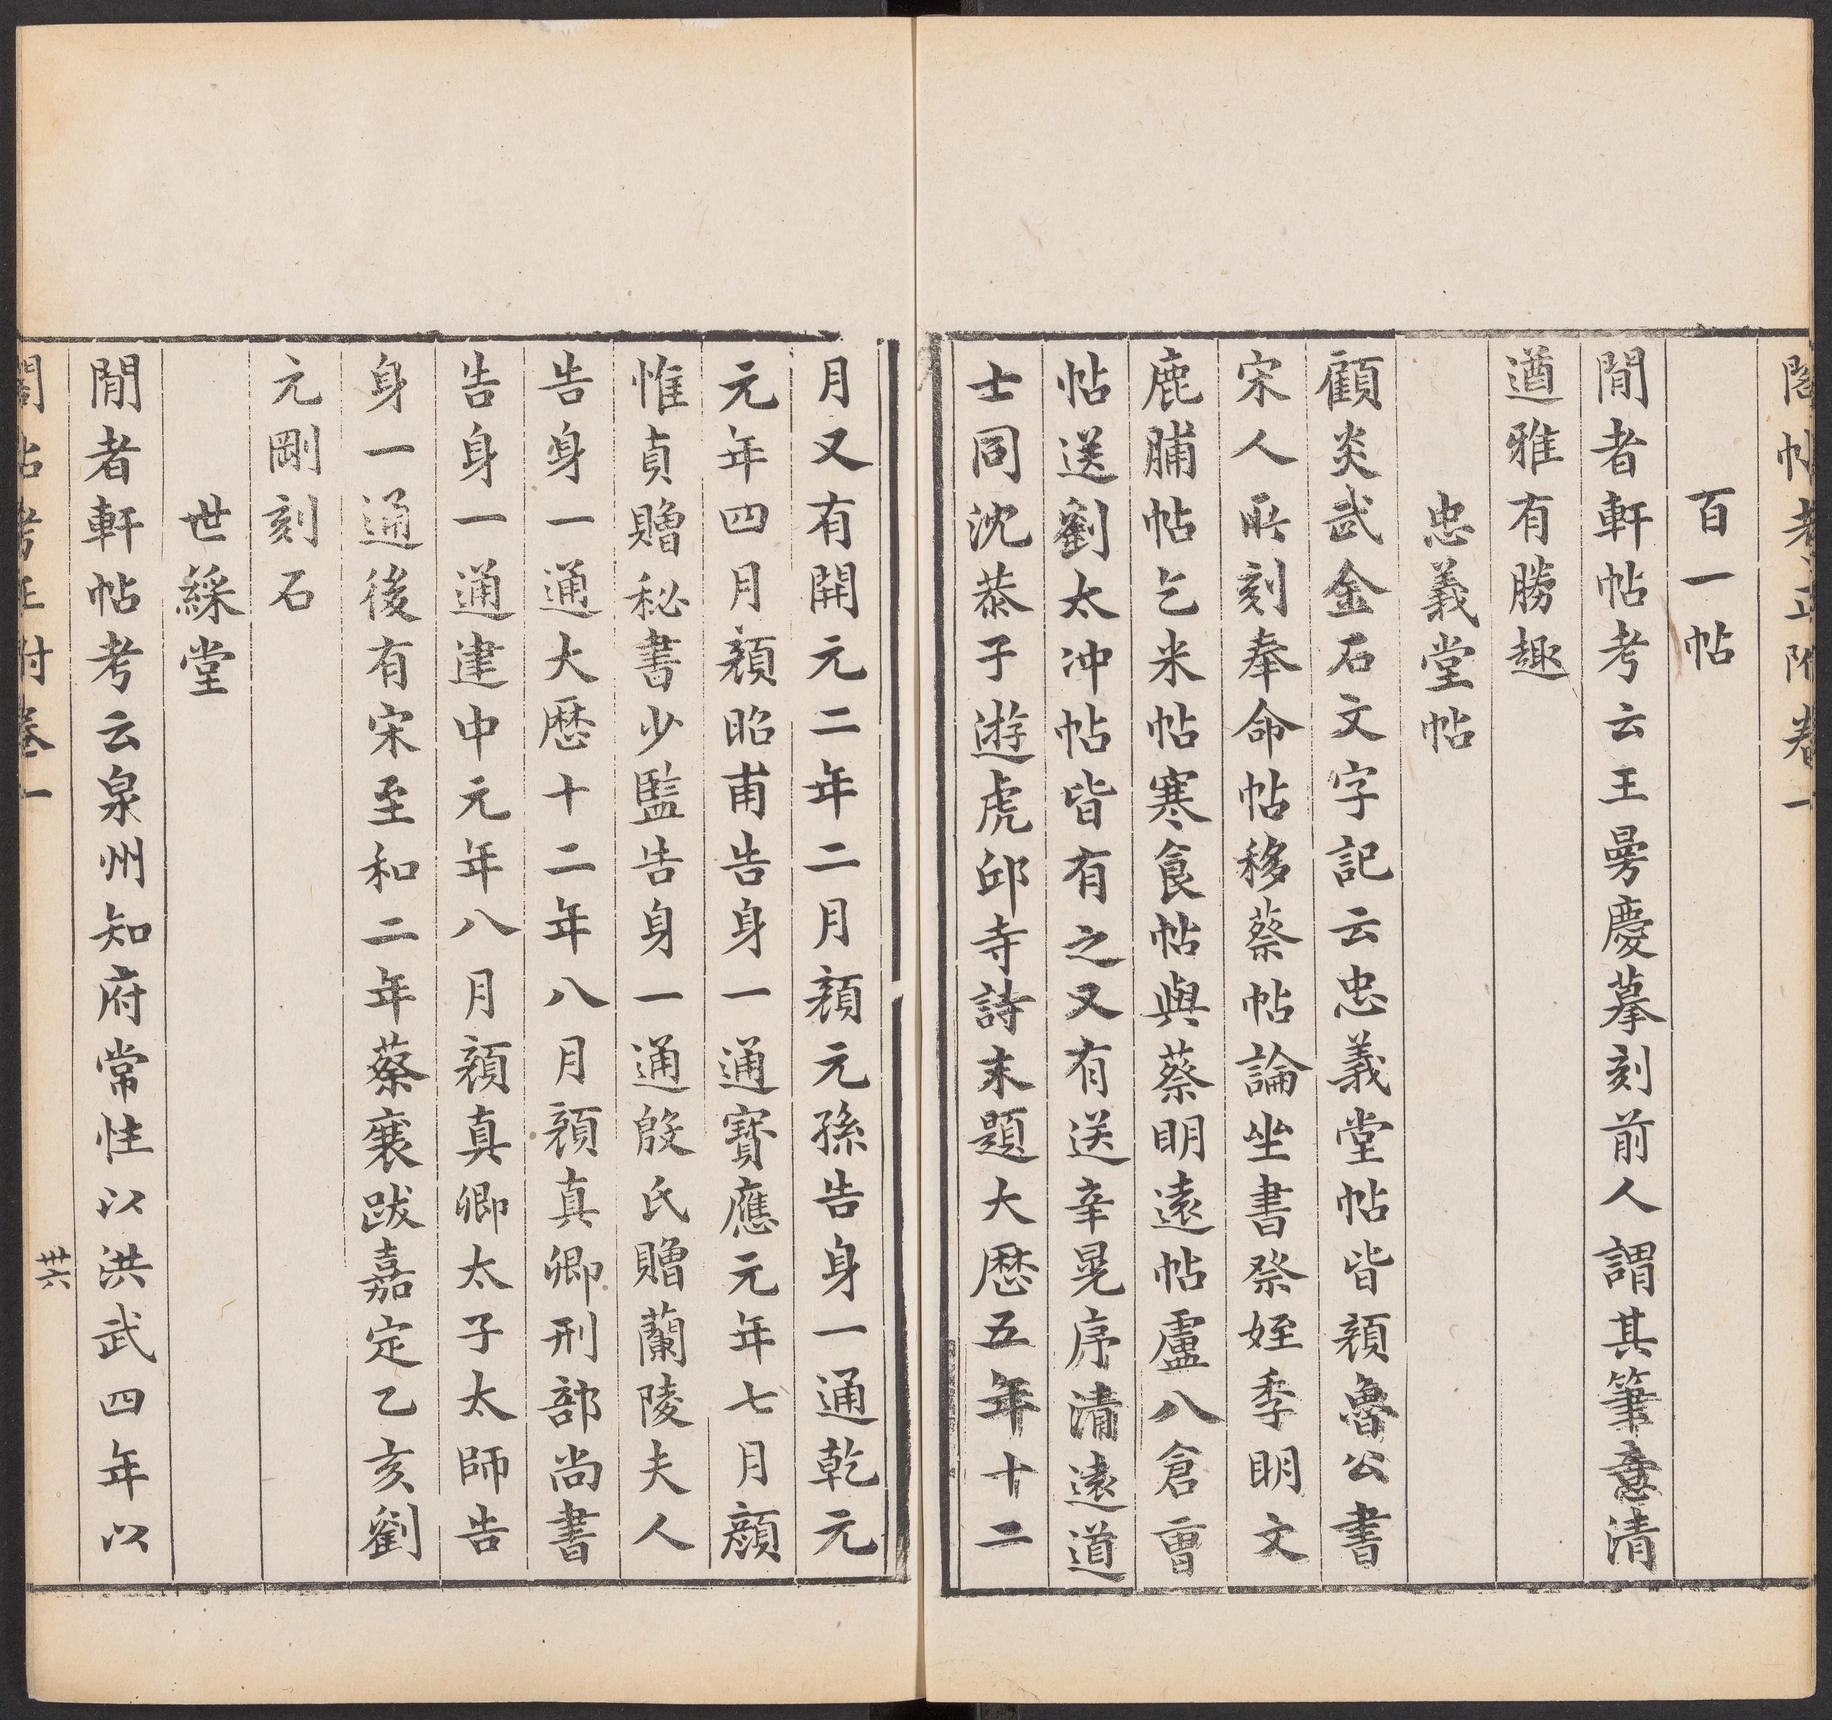 閣帖考正附卷一
百一帖
閒者軒帖考云王曼慶摹刻前人謂其筆意清
遒雅有勝趣
忠義堂帖
顧炎武金石文字記云忠義堂帖皆顏魯公書
宋人所刻奉命帖移蔡帖論坐書祭姪季明文
鹿脯帖乞米帖寒食帖與蔡明遠帖盧八倉曹
帖送劉太冲帖皆有之又有送辛晃序清遠道
士同沈恭子遊虎邱寺詩末題大厯五年十二
月又有開元二年二月顏元孫告身一通乾元
元年四月顏昭甫告身一通寶應元年七月顏
惟貞贈秘書少監告身一通殷氏贈蘭陵夫人
告身一通大厯十二年八月顏真卿刑部尚書
告身一通建中元年八月顏真卿太子太師告
身一通後有宋至和二年蔡襄跋嘉定乙亥劉
元剛刻石
世綵堂
閒者軒帖考云泉州知府常性以洪武四年以
閣帖考正附卷一
卅六